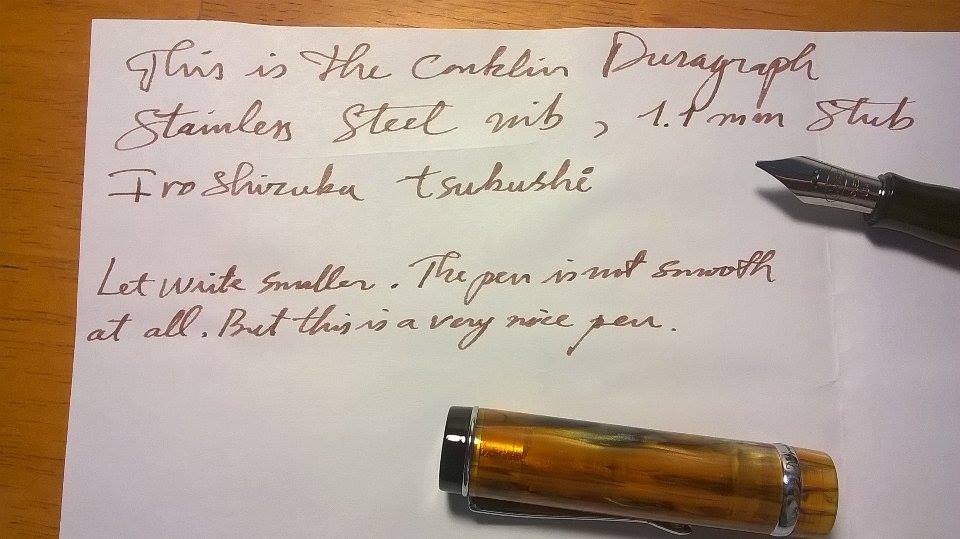 This is the Conklin Duragraph
Stainless Steel nib, 1.1 mm Stub
Iroshizuku tsukushi
Let write smaller. The pen is not smooth
at all. But this is a very nice pen.